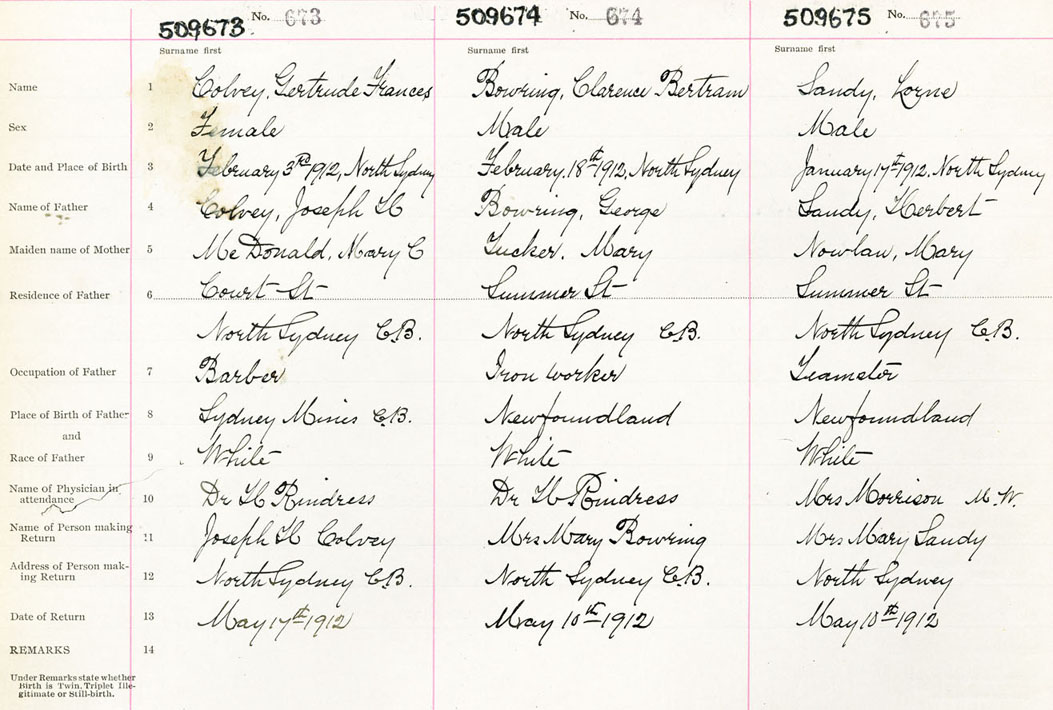 509673 No. 673 509674 No. 674 509675 No. 675
Surname first Surname first Surname first
Name 1 Colvey, Gertrude Frances Bowring, Clarence Bertram Sandy, Lorne
Sex 2 Female Male Male
Date and Place of Birth 3 February 3rd 1912, North Sydney February, 18th 1912, North Sydney January 17th 1912, North Sydney
Name of Father 4 Colvey, Joseph H Bowring, George Sandy, Herbert
Maiden name of Mother 5 McDonald, Mary C Tucker, Mary Nowlan, Mary
Residence of Father 6 Court St Summer St Summer St
North Sydney C.B. North Sydney C.B. North Sydney C.B.
Occupation of Father 7 Barber Iron worker Teamster
Place of Birth of Father 8 Sydney Mines C.B. Newfoundland Newfoundland
and
Race of Father 9 White White White
Name of Physician in
attendance 10 Dr H Rindress Dr H Rindress Mrs Morrison M.W.
Name of Person making
Return 11 Joseph H Colvey Mrs Mary Bowring Mrs Mary Sandy
Address of Person mak-
ing Return 12 North Sydney C.B. North Sydney C.B. North Sydney
Date of Return 13 May 17th 1912 May 10th 1912 May 10th 1912
REMARKS 14
Under Remarks state whether
Birth is Twin, Triplet Ille-
gitimate or Still-birth.